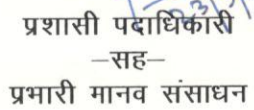 प्रशासी पदाधिकारी
–सह–
प्रभारी मानव संसाधन